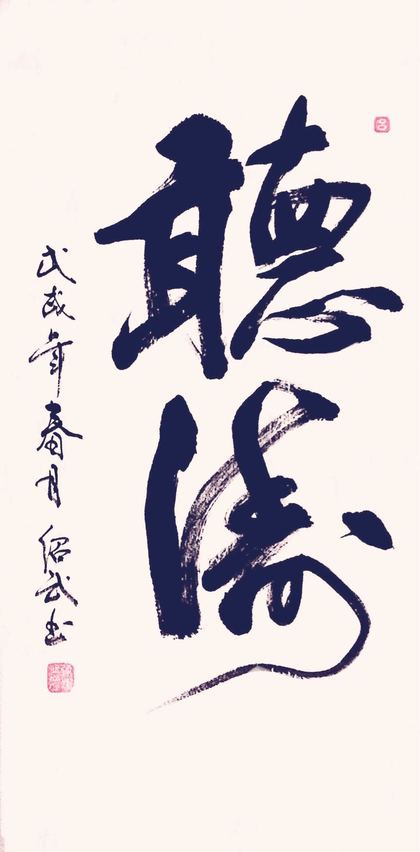 聽濤
戊戌年春月紹武書